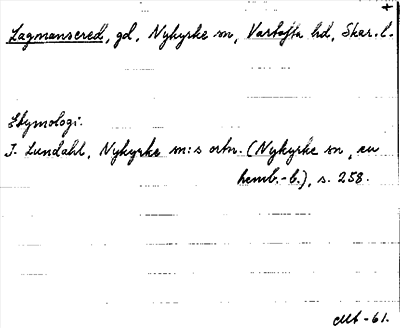 +
Lagmansered, gd, Nykyrke sn, Vartofta hd, Skar. l.
Etymologi:
I. Lundahl, Nykyrke sn:s ortn. (Nykyrke sn, en
hemb.-b.), s. 258.
-61.